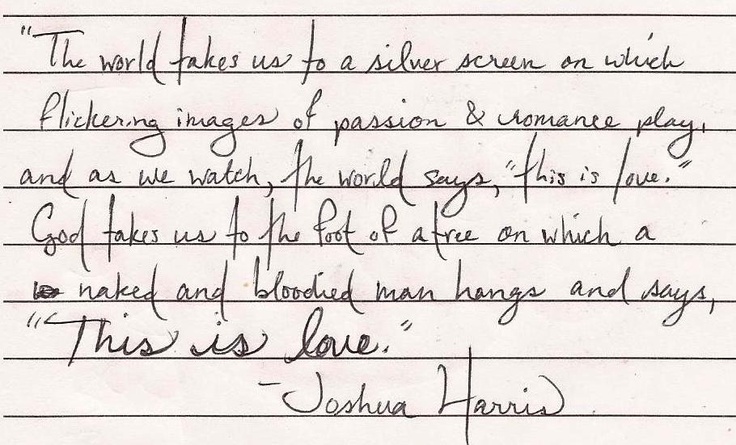 "The world takes us to a silver screen on which
flickering images of passion & romance play,
and as we watch, the world says, "this is love."
God takes us to the foot of a tree on which a
naked and bloodied man hangs and says,
"This is love."
-Joshua Harris